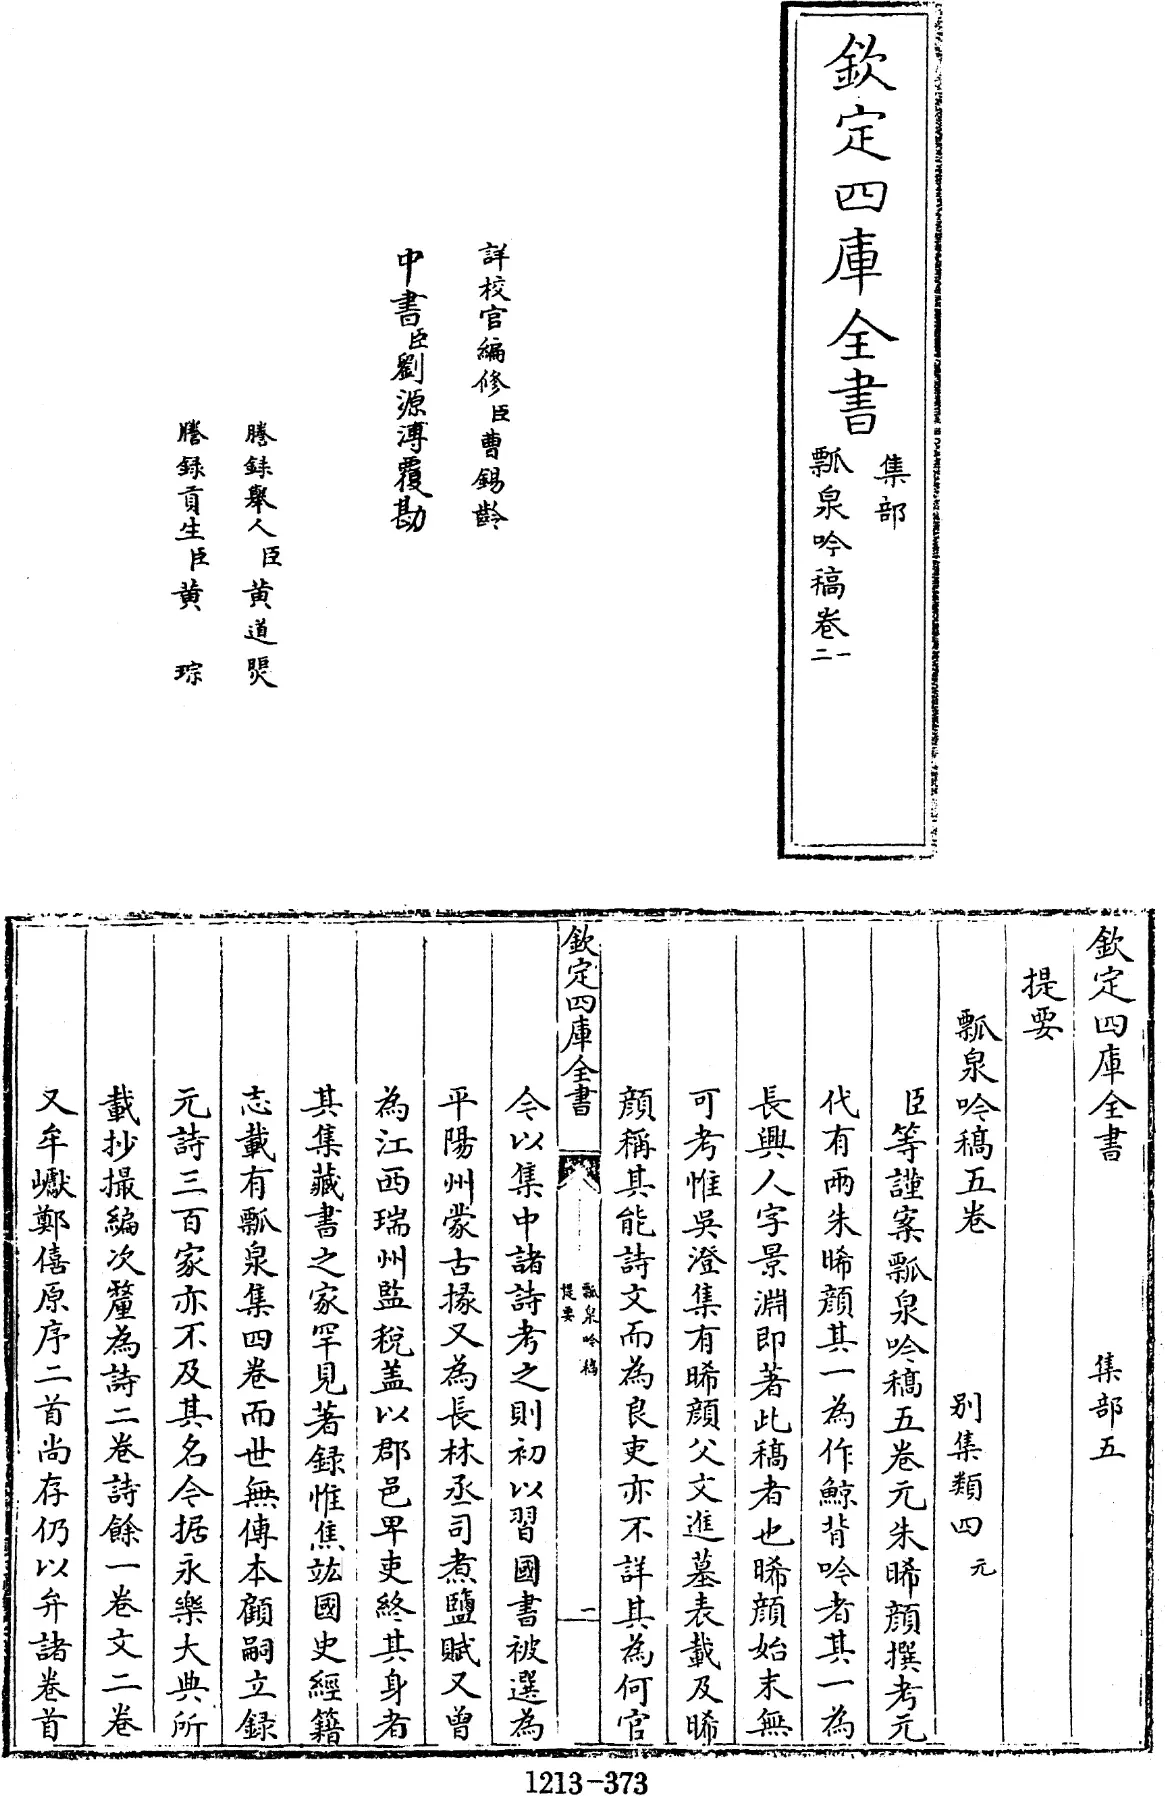 欽定四庫全書
集部
瓢泉吟稿卷一
二
詳校官編修臣曹錫齡
中書臣劉源溥覆勘
謄録舉人臣黄道煚
謄録貢生臣黄 琮
欽定四庫全書 集部五
提要
瓢泉吟稿五卷 别集類四 元
臣等謹案瓢泉吟稿五卷元朱晞顔撰考元
代有兩朱晞顔其一為作鯨背吟者其一為
長興人字景淵即著此稿者也晞顔始末無
可考惟吳澄集有晞顔父文進墓表載及晞
顔稱其能詩文而為良吏亦不詳其為何官
欽定四庫全書
瓢泉吟稿
提要
一
今以集中諸詩考之則初以習國書被選為
平陽州蒙古掾又為長林丞司煮鹽賦又曾
為江西瑞州監税盖以郡邑卑吏終其身者
其集藏書之家罕見著録惟焦竑國史經籍
志載有瓢泉集四卷而世無傳本顧嗣立録
元詩三百家亦不及其名今据永樂大典所
載抄撮編次釐為詩二卷詩餘一卷文二卷
又牟巘鄭僖原序二首尚存仍以弁諸卷首
1213-373